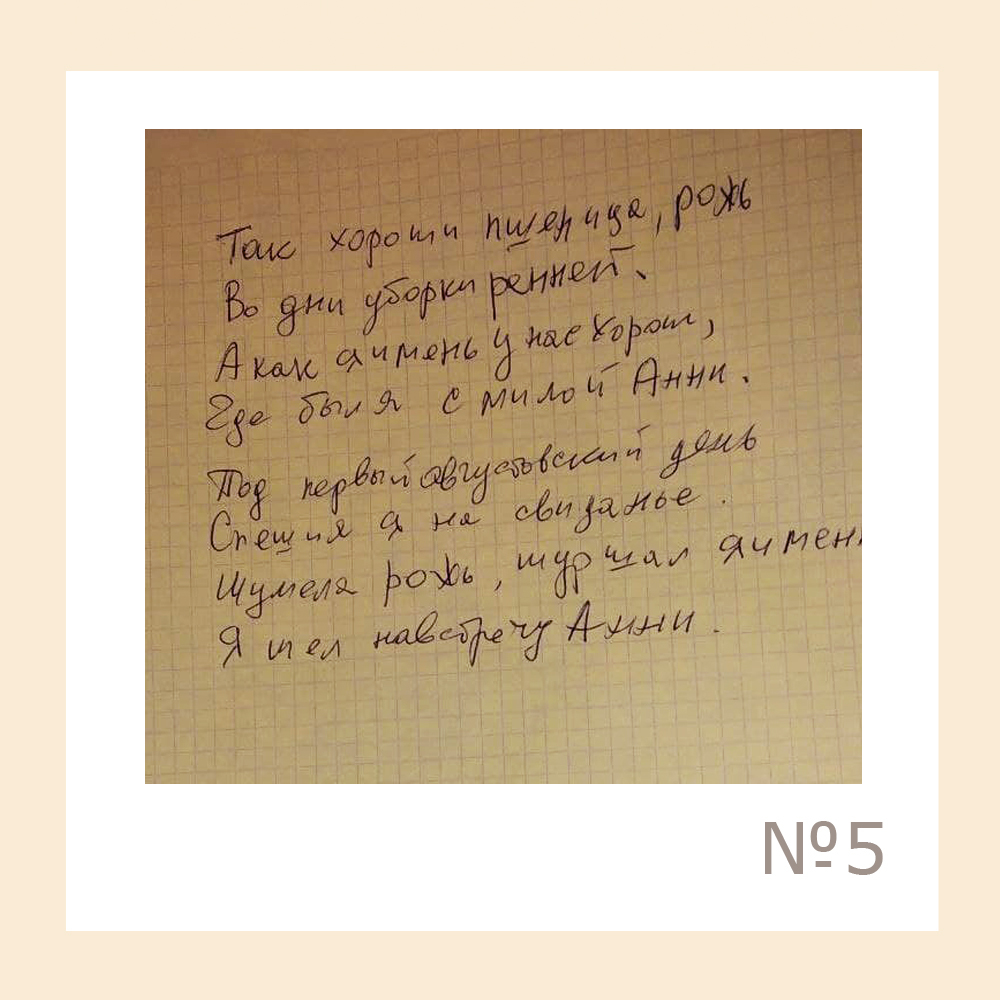 Так хороши пшеница, рожь
Во дни уборки ренней.
А как ячмень у нас хорош,
Где был я с милой Анни.
Под первый августовский день
Спешил я на свиданье.
Шумела рожь, шуршал ячмен
Я шел навстречу Анни.
№5